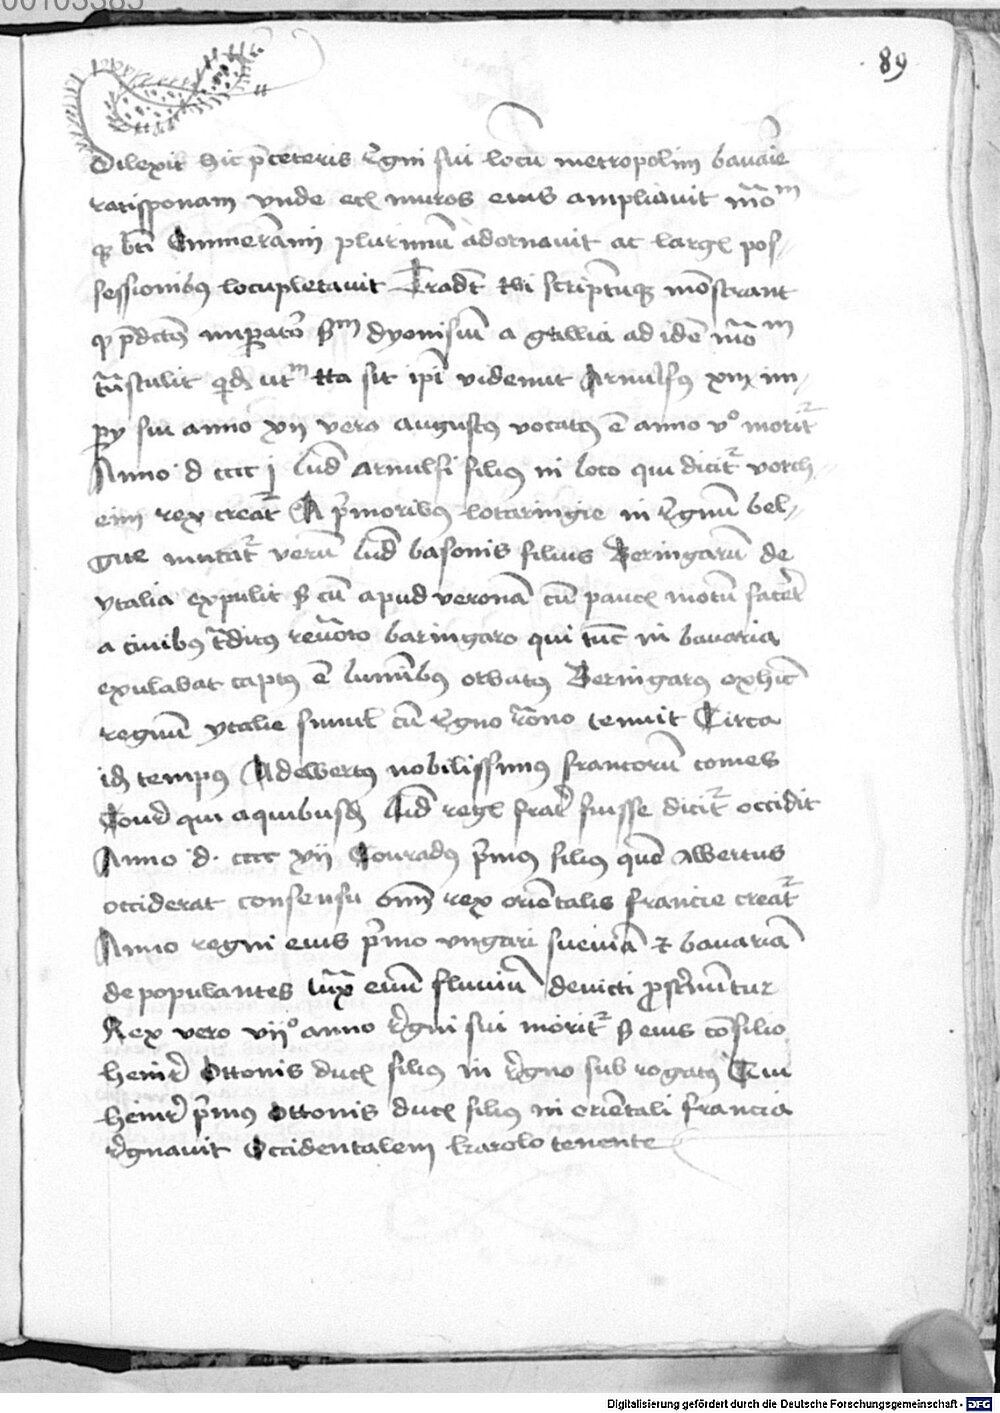 00103385
89
Dilexit hic p̄ceteris r̄gni sui locū metropolim bavaīe
ratisponam vnde etꝭ muros eius ampliavit mōm
qꝫ bti Emmerāmi plurimū adornavit ac largꝭ pos-
sessionibꝰ locupletavit Tradt ibi scriptūqꝫ mōstrant
qꝫ p̄dctꝰ impator̄ sm dyonisiū a gallia ad idē mōm
trāstulit qd utm ita sit ipī viderint Arnulfꝰ xiii im-
pij sui anno xii vero augustꝰ vocatꝰ ē anno vͦ morit̄
Anno d cccc j lud arnulfi filiꝰ in loco qui dicit̄ vorch-
eim rex creat̄ A p̄moribꝰ lotaringie in r̄gnū bel-
gice mutat̄ verū lud basonis filius Beringarū de
ytalia expulit S cū apud veronā cū paucꝭ motū facēt
a civibꝰ t̄ditꝰ revōto baringaro qui tūc in bavaria
exulabat captꝰ ē luminībꝰ orbatꝰ Beringarꝰ exhīc
regnū ytalie simul cū r̄gno rōno tenuit Circa
id tempꝰ Adelbertꝰ nobilissimꝰ francorū comes
Conr̄ qui a quibusd lud regꝭ frat̄ fuisse dicit̄ occidit
Anno d. cccc xii Conradꝰ p̄mꝰ filiꝰ quē albertus
occiderat consensu ōnī rex oriētalis francie creat̄
Anno regni eius p̄mo vngari sueviā et bavariā
depopulantes iux̄ enū fluviū devicti prostnūtur
Rex vero viiͦ anno r̄gni sui morit̄ S eius cōsilio
heinr̄ Ottonis ducꝭ filiꝰ in r̄gno sub rogatꝰ Qui
heinr̄ p̄mꝰ ottonis ducꝭ filiꝰ in oriētali francia
r̄gnavit Occidentalem karolo tenente
Digitalisierung gefördert durch die Deutsche Forschungsgemeinschaft - DFG